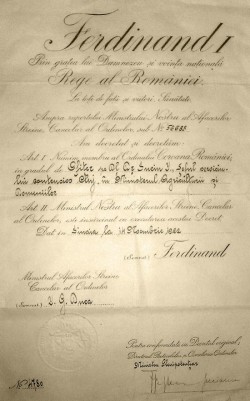 Ferdinand I
Prin grația lui Dumnezeu și voința națională
Rege al României.
La toți de față și viitori, Sănătate.
Asupra raportului Ministrului Nostru al Afacerilor
Străine, Cancelar al Ordinelor, sub No
Am decretat și decretăm:
Art. I. Numim membru al Ordinului Coroana României,
în gradul de Ofițer pe Dl Șeful
lui contencios Cluj, în Ministerul Agriculturii și
Domeniilor
Art. II. Ministrul Nostru al Afacerilor Străine, Cancelar
al Ordinelor, este însărcinat cu executarea acestui Decret.
Dat în Sinaia la 14 1922
(Semnat) Ferdinand
Ministrul Afacerilor Străine
Cancelar al Ordinelor
(Semnat) I. G. Duca
Pentru conformitate cu Decretul original,
Directorul și Cancelaria Ordinelor
Ministru Plenipotențiar
No